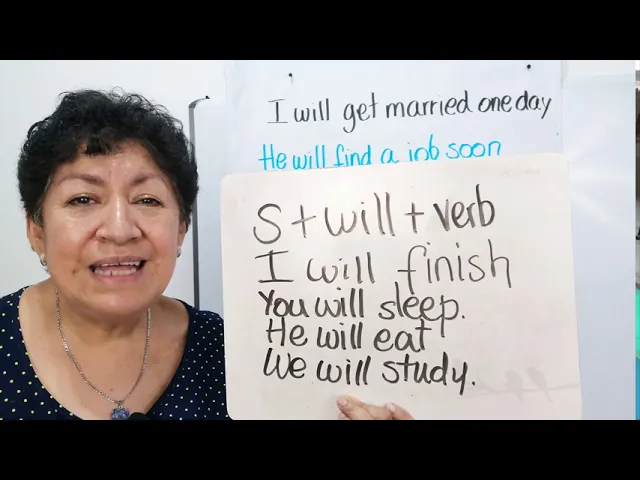 I will get married one day
He will find a job soon
S + will + verb
I will finish
You will sleep.
He will eat
We will study.